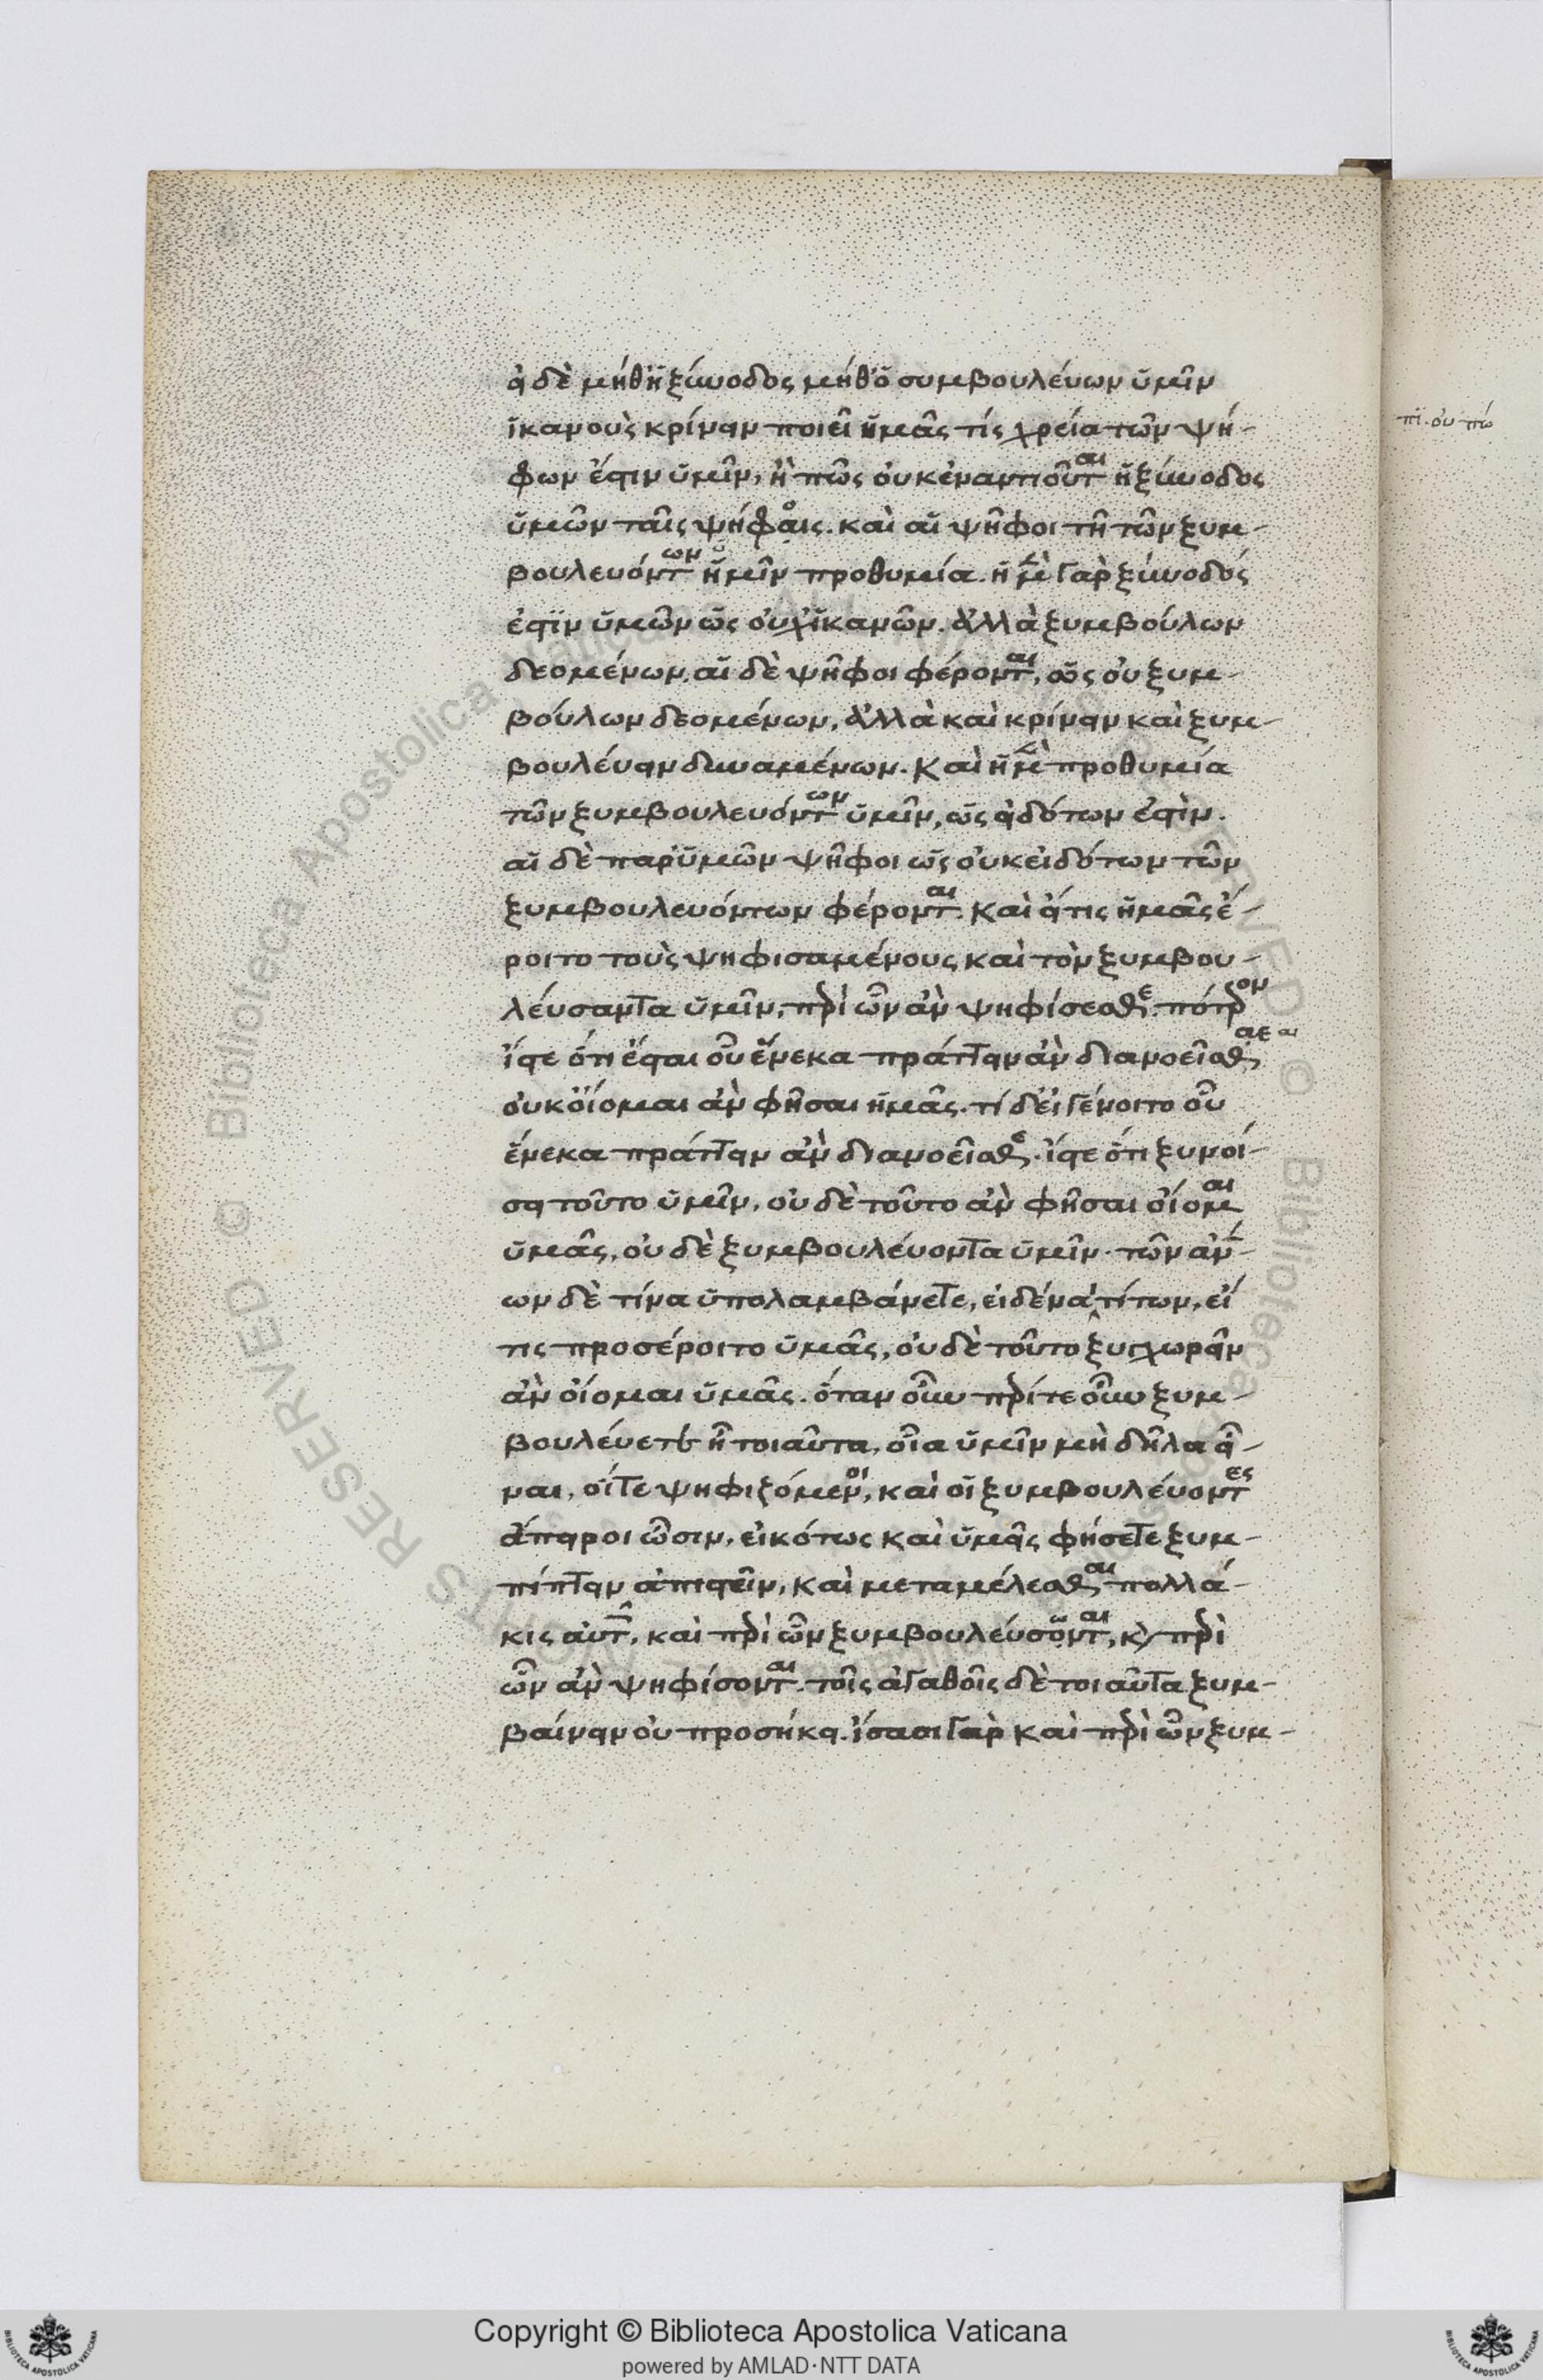 εἰ δὲ μήθ' ἡ ξύνοδος μήθ' ὁ συμβουλεύων ὑμῖν
ἱκανοὺς κρίνειν ποιεῖ ἡμᾶς τίς χρεία τῶν ψή-
φων ἔστιν ὑμῖν, ἢ πῶς οὐκ ἐναντιοῦται ἡ ξύνοδος
ὑμῶν ταῖς ψήφαις. καὶ αἱ ψῆφοι τῆ τῶν ξυμ-
βουλευόντων ἡμῖν προθυμία. ἡ μὲν γὰρ ξύνοδός
ἐστιν ὑμῶν ὡς οὐχ ἱκανῶν. ἀλλὰ ξυμβούλων
δεομένων. αἱ δὲ ψῆφοι φέρονται, ὡς οὐ ξυμ-
βούλων δεομένων, ἀλλὰ καὶ κρίνειν καὶ ξυμ-
βουλεύειν δυναμένων. καὶ ἡ μὲν προθυμία
τῶν ξυμβουλευόντων ὑμῖν, ὡς εἰδότων ἐστὶν.
αἱ δὲ παρ' ὑμῶν ψῆφοι ὡς οὐκ εἰδότων τῶν
ξυμβουλευόντων φέρονται. καὶ εἴ τις ἡμᾶς ἔ-
ροιτο τοὺς ψηφισαμένους καὶ τὸν ξυμβου-
λεύσαντα ὑμῖν, περὶ ὧν ἂν ψηφίσεσθε. πότερον
ἴστε ὅτι ἔσται οὗ ἕνεκα πράττειν ἂν διανοεῖσθε
οὐκ οἴομαι ἂν φῆσαι ἡμᾶς. τί δ' εἰ γένοιτο οὗ
ἕνεκα πράττειν ἂν διανοεῖσθε. ἴστε ὅτι ξυνοί-
σει τοῦτο ὑμῖν, οὐδὲ τοῦτο ἂν φῆσαι οἴομαι
ὑμᾶς, οὐδὲ ξυμβουλεύοντα ὑμῖν. τῶν ἀνθρώπ-
ων δὲ τίνα ὑπολαμβάνετε, εἰδέναι τί τούτων, εἴ
τις προσέροιτο ὑμᾶς, οὐδὲ τοῦτο ξυγχωρεῖν
ἂν οἴομαι ὑμᾶς. ὅταν οὖν περί τε οὖν ξυμ-
βουλεύετε ἢ τοιαῦτα, οἷα ὑμῖν μὴ δῆλα εἶ-
ναι, οἵ τε ψηφιζόμενοι, καὶ οἱ ξυμβουλεύοντες
ἄπειροι ὦσιν, εἰκότως καὶ ὑμεῖς φήσετε ξυμ-
πίπτειν ἀπιστεῖν, καὶ μεταμέλεσθαι πολλά-
κις αὐτοῖς, καὶ περὶ ὧν ξυμβουλεύσονται, καὶ περὶ
ὧν ἂν ψηφίσονται. τοῖς ἀγαθοῖς δὲ τοιαῦτα ξυμ-
βαίνειν οὐ προσήκει. ἴσασι γὰρ καὶ περὶ ὧν ξυμ-
Copyright © Biblioteca Apostolica Vaticana
powered by AMLAD·NTT DATA